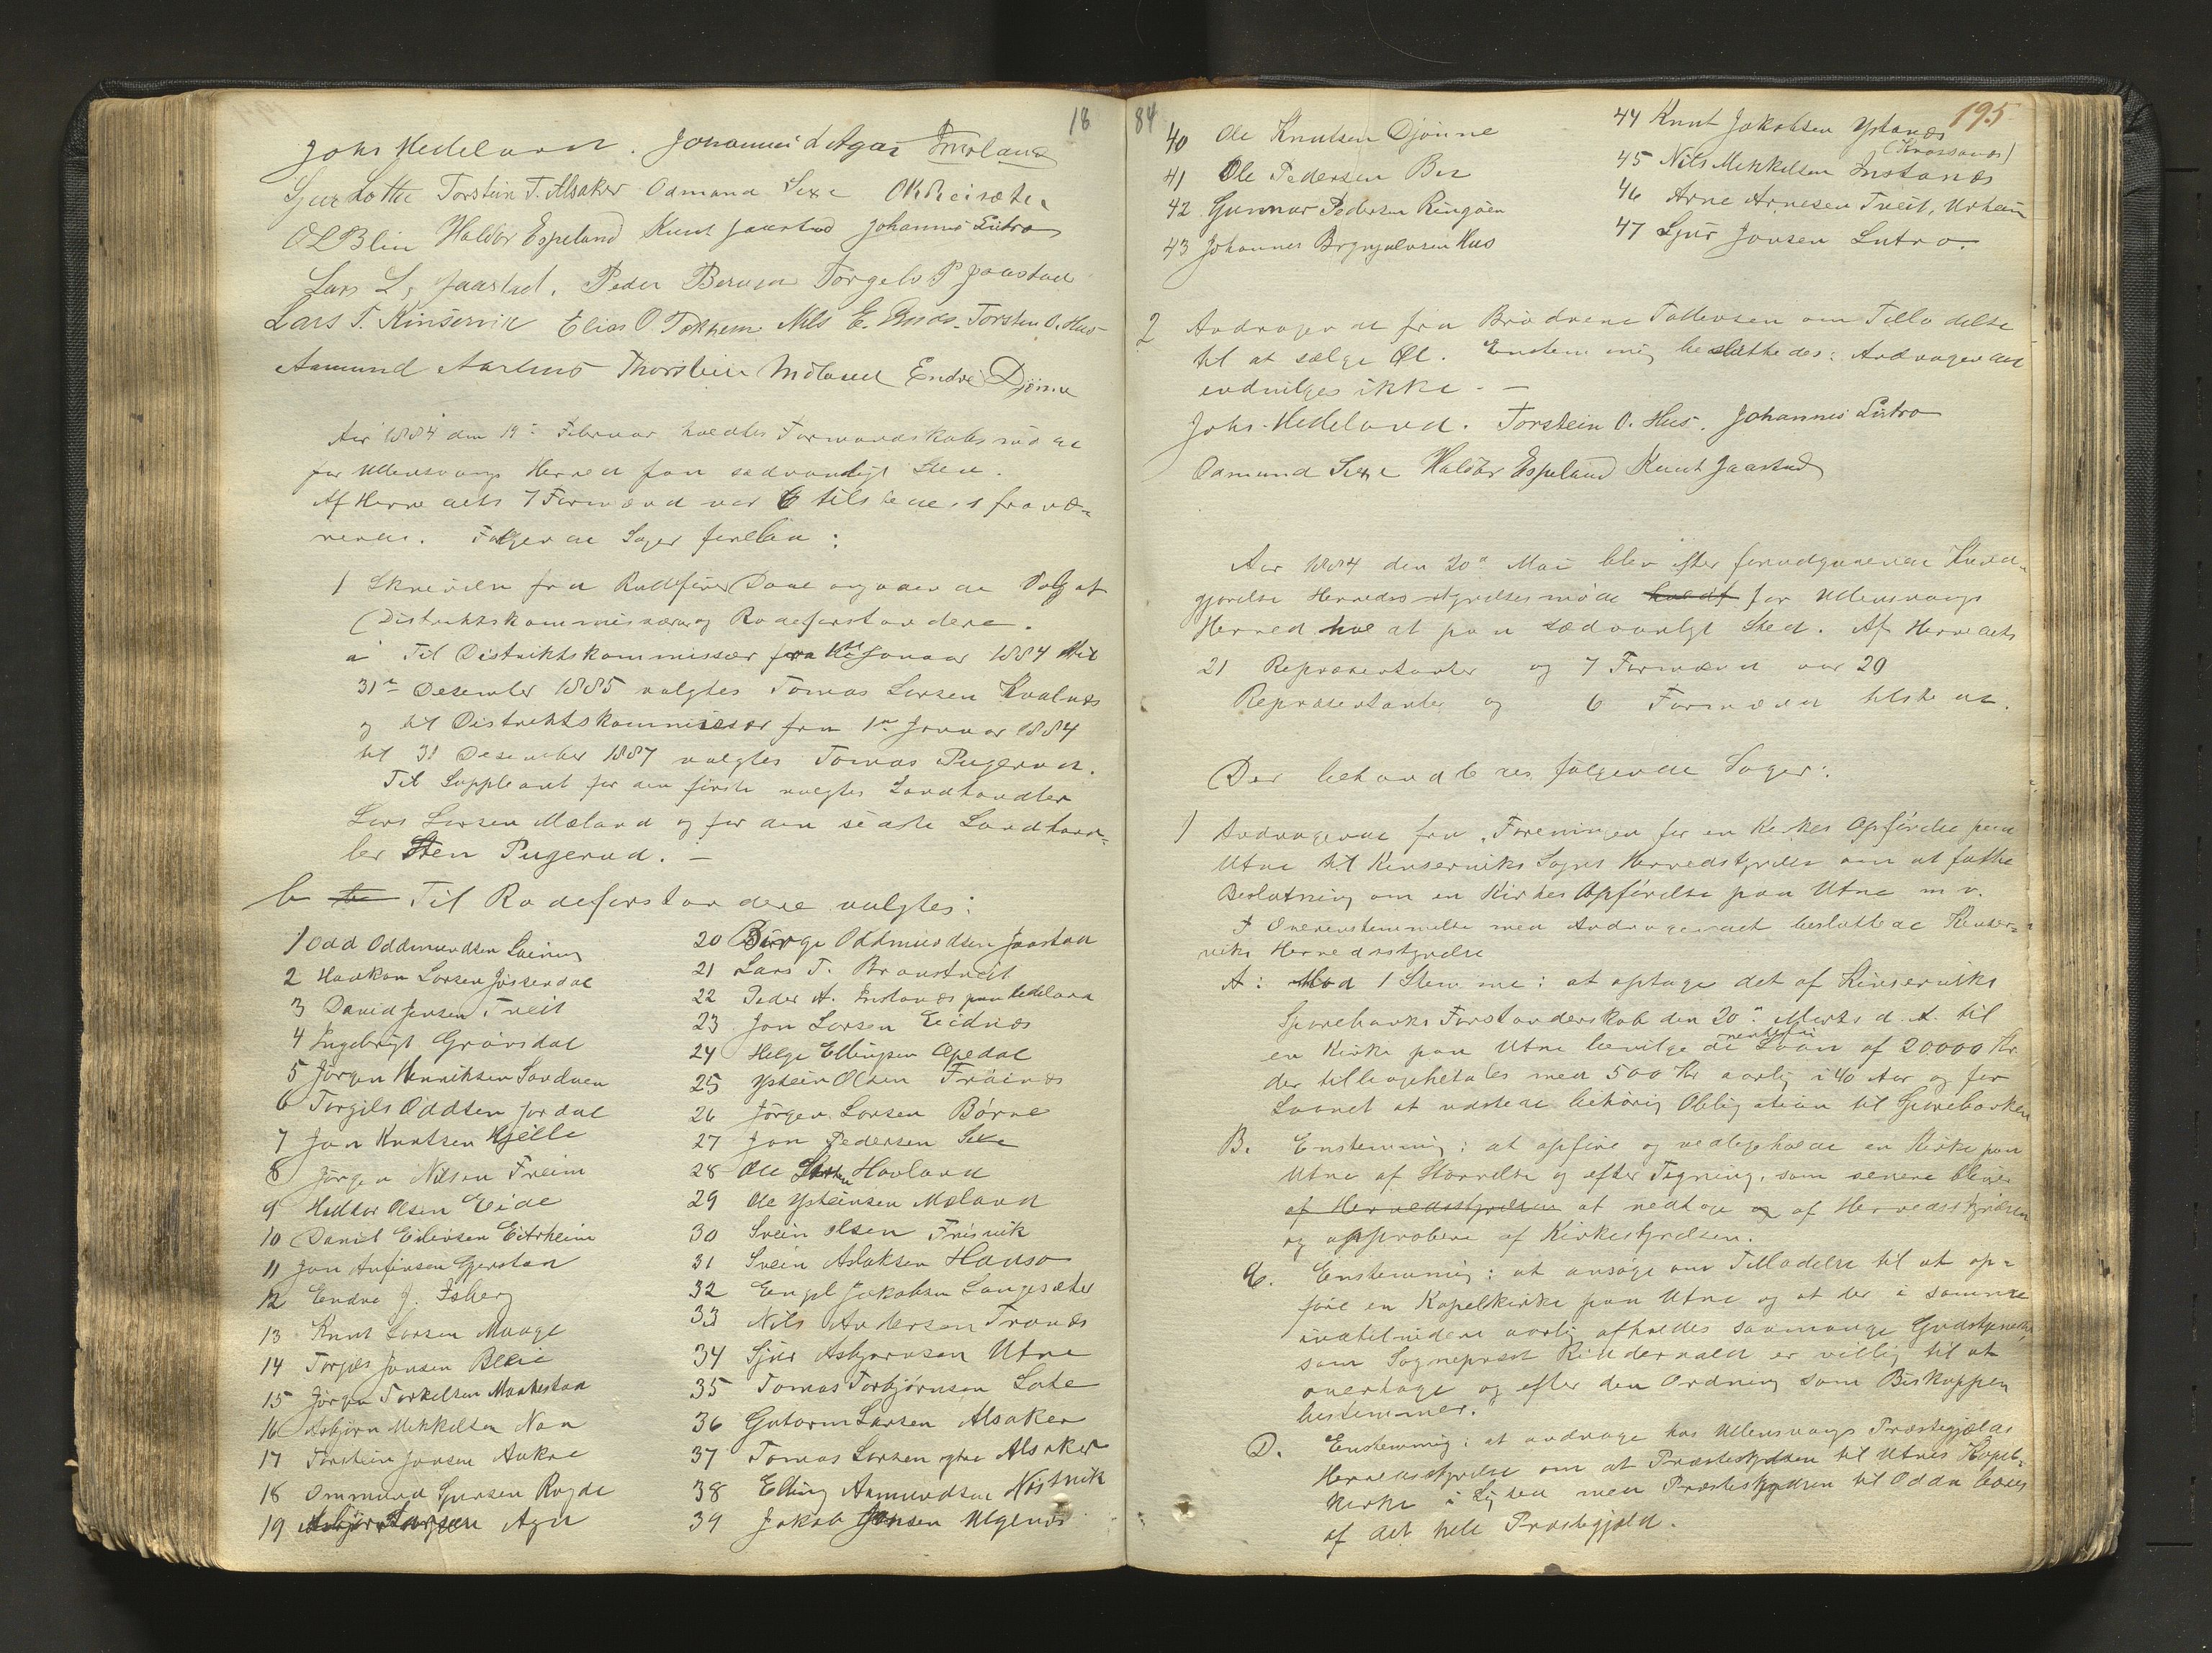 18
Johs Medeland. Johannes d Agar Imoland
Sjur Lothe Torstein T. Alsaker Odmund Sexe O K Reisæter
O L Blie Haldor Espeland Knut Jaastad Johannes Lutro
Lars L. Jaastad. Peder Torgels P Jaastad
Lars T. Kinservik Elias O Tokheim Nils E. Torsten O. Hus
Aamund Aarhus Thorstein Moland Endre Djønne
Aar 1884 den 19de Februar holdtes Formandskabsmøde
for Ullensvangs Herred paa sædvanligt Sted.
Af Herredets 7 Formænd var 6 tilstede, 1 fravæ-
rende. Følgende Sager forelaa:
1 Skrivelse fra Rodefører Daae angaaende Valg af
Distriktskommissærer og Rodeforstandere.
a Til Distriktskommissær fra 1ste Januar 1884 til
31te Desember 1885 valgtes Tomas Larsen Kvalnes
og til Distriktskommissær fra 1ste Januar 1884
til 31 Desember 1887 valgtes Tomas Pugerud.
Til Suppleant for den første valgtes Landhandler
Lars Larsen Mæland og for den sidste Landhand-
ler Sten Pugerud. —
b Til Rodeforstandere valgtes:
1 Odd Oddmundsen
2 Haakon Larsen Jøsendal
3 David Jensen Tveit
4 Ingebrigt Grønsdal
5 Jørgen Henriksen Sandven
6 Torgils Oddsen Jordal
7 Jon Knutsen Hjelle
8 Jørgen Nilsen Freim
9 Haldor Olsen Eide
10 Daniel Eilevsen Eitrheim
11 Jon Aufinsen Gjerstad
12 Endre J. Isberg
13 Knut Larsen Maage
14 Torgils Jonsen Bleie
15 Jørgen Torkelsen Mankestad
16 Asbjørn Mikkelsen Naa
17 Torstein Jonsen Aakre
18 Ommund Gunsen Rogde
19 Asbjørn Larsen Aga
20 Børge Oddmundsen Jaastad
21 Lars T. Braustveit
22 Peder A. Instanæs paa Hedeland
23 Jon Larsen Eidnæs
24 Helge Ellingsen Apedal
25 Ystein Olsen Fræinæs
26 Jørgen Larsen Børve
27 Jon Pedersen Sexe
28 Ole Larsen Hovland
29 Ole Ysteinsen Mæland
30 Svein Olsen Fresvik
31 Svein Aslaksen Hauso
32 Engel Jakobsen Langesæter
33 Nils Andersen Tronæs
34 Sjur Asbjørnsen Utne
35 Tomas Torbjørnsen Lote
36 Gutorm Larsen Alsaker
37 Tomas Larsen ytre Alsaker
38 Elling Aamundsen Nistvik
39 Jakob Jonsen Ulgenæs
84
195
40 Ole Knutsen Djønne
41 Ole Pedersen Bu
42 Gunnar Pedersen Ringøen
43 Johannes Brynjulvsen Hus
44 Knut Jakobsen Ystanæs
(Krossanæs)
45 Nils Mikkelsen Instanæs
46 Arne Arnesen Tveit, Urheim
47 Sjur Jonsen Lutro.
2 Andragende fra Brødrene Tollevsen om Tilladelse
til at sælge Øl. Enstemmig besluttedes: Andragendet
indvilges ikke. —
Johs. Medeland. Torstein O. Hus. Johannes Lutro
Odmund Sexe Haldor Espeland Knut Jaastad
Aar 1884 den 20de Mai blev efter forudgaaende Kund-
gjørelse Herredsstyrelsesmøde holdt for Ullensvangs
Herred holdt paa sædvanligt Sted. Af Herredets
21 Repræsentanter og 7 Formænd var 20
Repræsentanter og 6 Formænd tilstede.
Der behandledes følgende Sager:
1) Andragende fra "Foreningen for en Kirkes Opførelse paa
Utne" til Kinserviks Sogns Herredsstyrelse om at fatte
Beslutning om en Kirkes Opførelse paa Utne m v.
I Overensstemmelse med Andragendet besluttede Kinser-
viks Herredsstyrelse
A: Mod 1 Stemme: at optage det af Kinserviks
Sparebanks Forstanderskab den 20de Marts d. A. til
en Kirke paa Utne bevilgede rentefri Laan af 20.000 Kr.
der tilbagebetales med 500 Kr aarlig i 40 Aar og for
Laanet at udstede behørig Obligation til Sparebanken
B. Enstemmig: at opføre og vedligeholde en Kirke paa
Utne af Størrelse og efter Tegning, som senere bliver
af Herredsstyrelsen at vedtage og af Herredsstyrelsen
og approbere af Kirkestyrelsen.
C. Enstemmig: at ansøge om Tilladelse til at op-
føre en Kapelkirke paa Utne og at der i samme
indtil videre aarlig afholdes saamange Gudstjenester
som Sogneprest Riddervold er villig til at
overtage og efter den Ordning som Biskoppen
bestemmer."
D. Enstemmig: at andrage hos Ullensvangs Præstegjælds
Herredsstyrelse om at Præsteskydsen til Utnes Kapel-
kirke i Lighed med Præsteskydsen til Odda bæres
af det hele Præstegjæld.